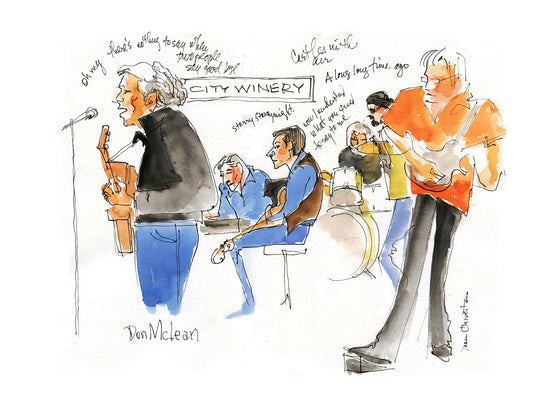 oh my there's nothing to say when
two people
say good bye
Castles in the
air
A long long time ago
CITY WINERY
starry starry night
now I understand
what you tried
to say to me
Don McLean